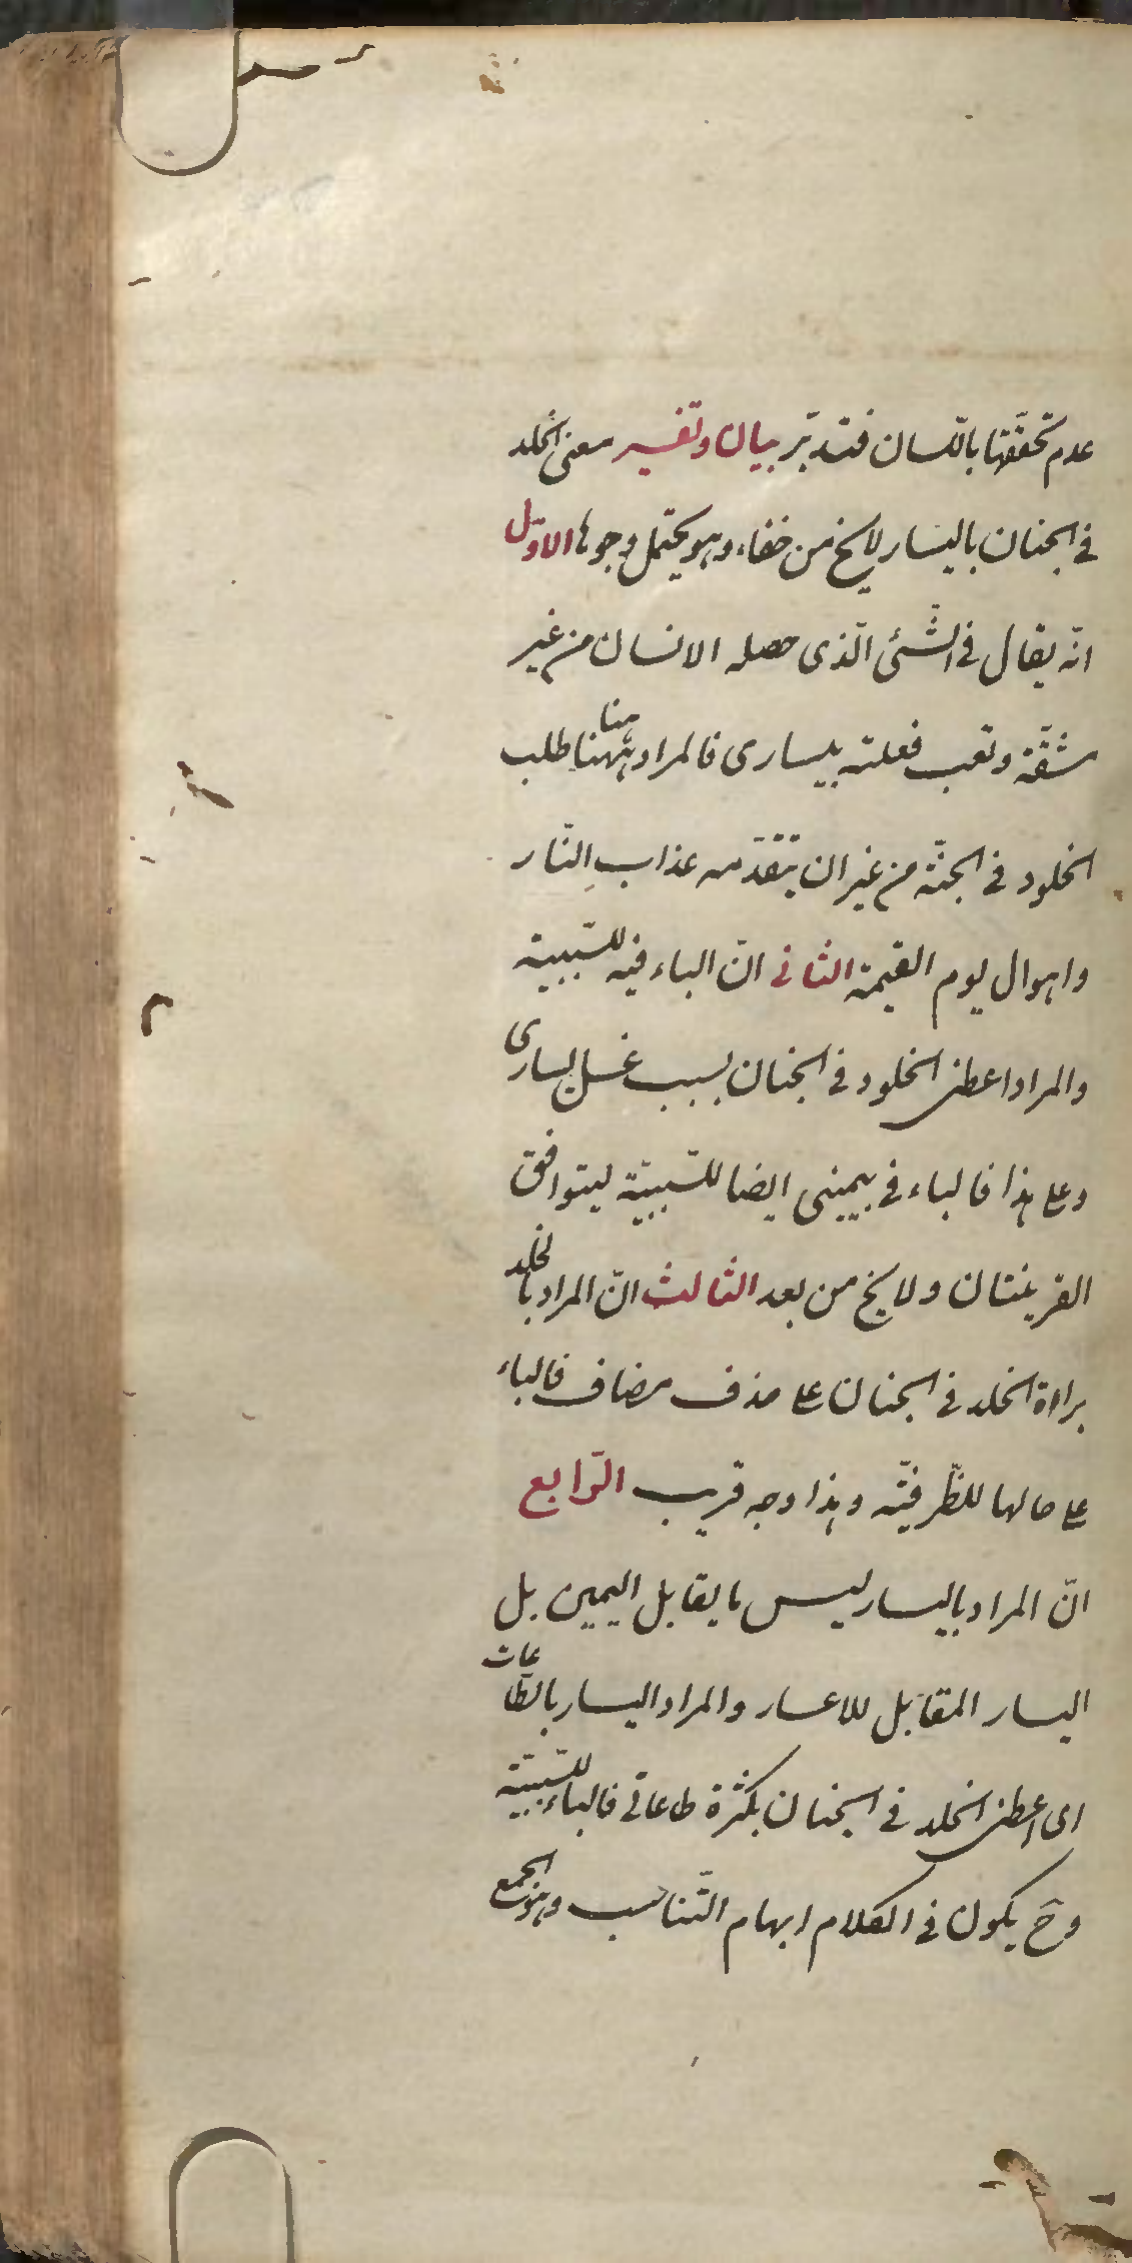 عدم تحققها باللسان فتدبّر بيان وتفسير معنى الخلد
فى الجنان باليسار لا يخ من خفاء وهو يحتمل وجوها الاوّل
انه يقال فى الشئ الّذى حصله الانسان من غير
مشقّة وتعب فعلته بيسارى فالمراد ههنا طلب
الخلود فى الجنّة من غير ان يتقدّمه عذاب النّار
واهوال يوم القيمة الثانى انّ الباء فيه للسّببية
والمراد اعطنى الخلود فى الجنان بسبب غسل يسارى
وعلى هذا فالباء فى بيمينى ايضا للسّببيّة ليتوافق
القرينتان ولا يخ من بعد الثالث انّ المراد بالخلد
براءة الخلد فى الجنان على حذف مضاف فالباء
على حالها للظّرفيّة وهذا وجه قريب الرّابع
انّ المراد باليسار ليس ما يقابل اليمين بل
اليسار المقابل للاعسار والمراد اليسار بالطّاعات
اى اعطنى الخلد فى الجنان بكثرة طاعاتى فالباء للسّببيّة
وح يكون فى الكلام ايهام التّناسب وهو الجمع